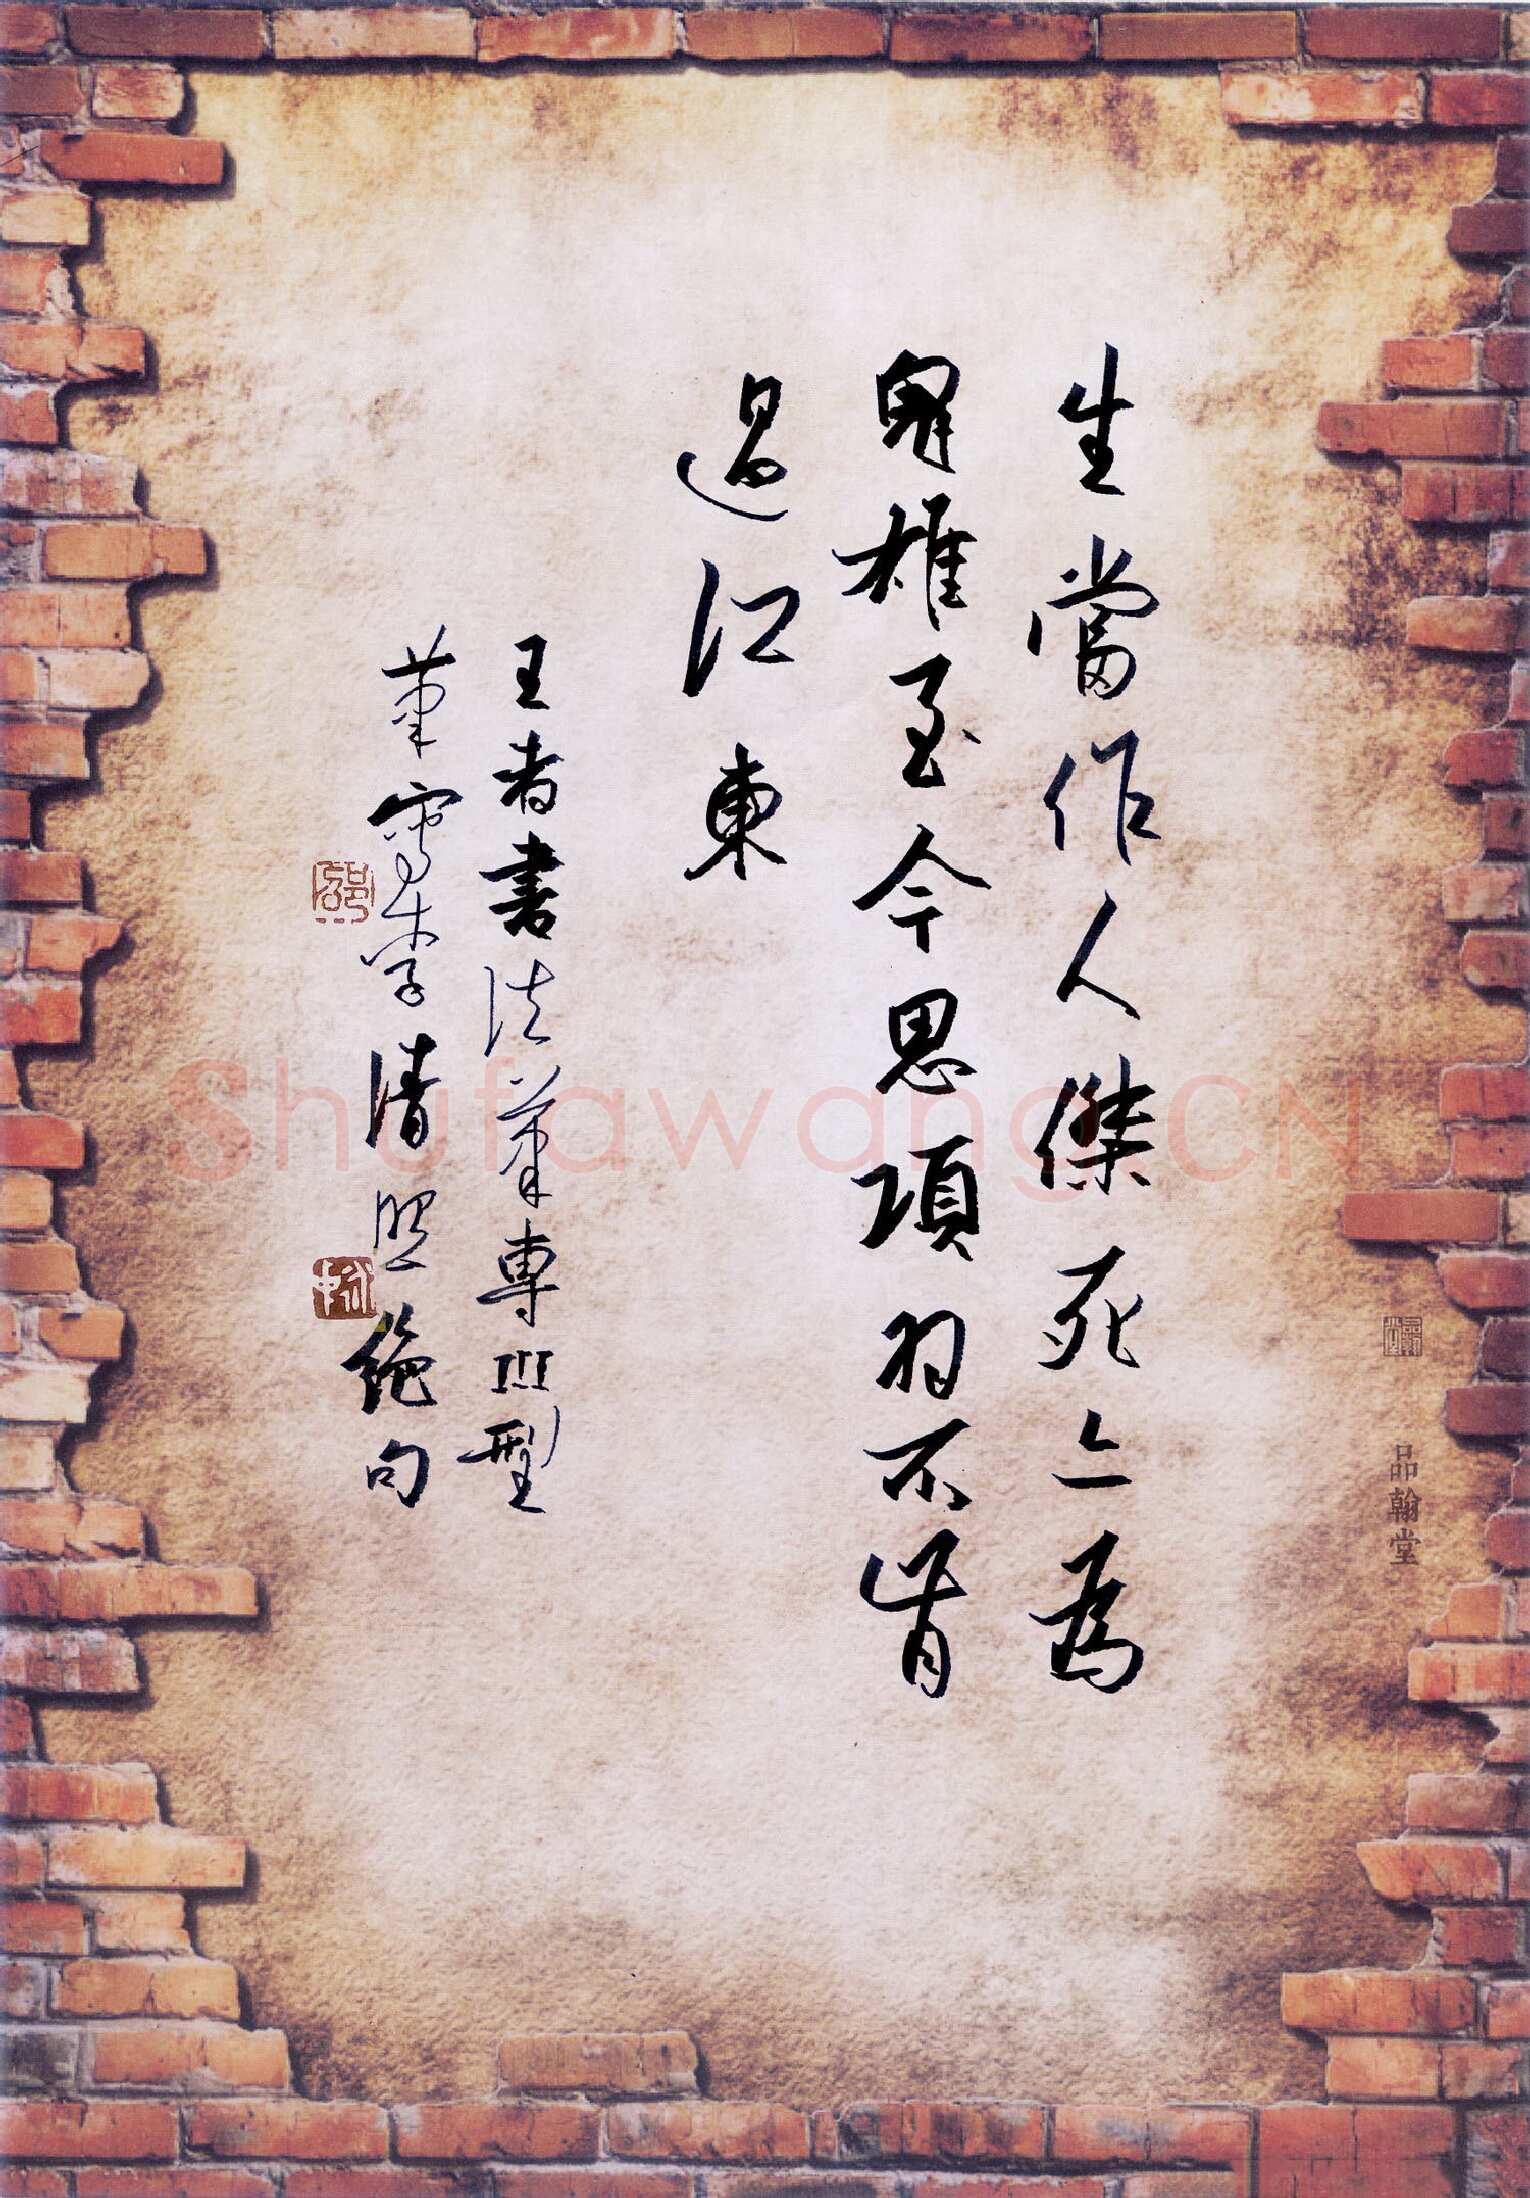 生當作人傑死亦為
鬼雄至今思項羽不肯
過江東
王者書法筆專III型
筆寫李清照绝句
品翰堂
Shufawang.CN